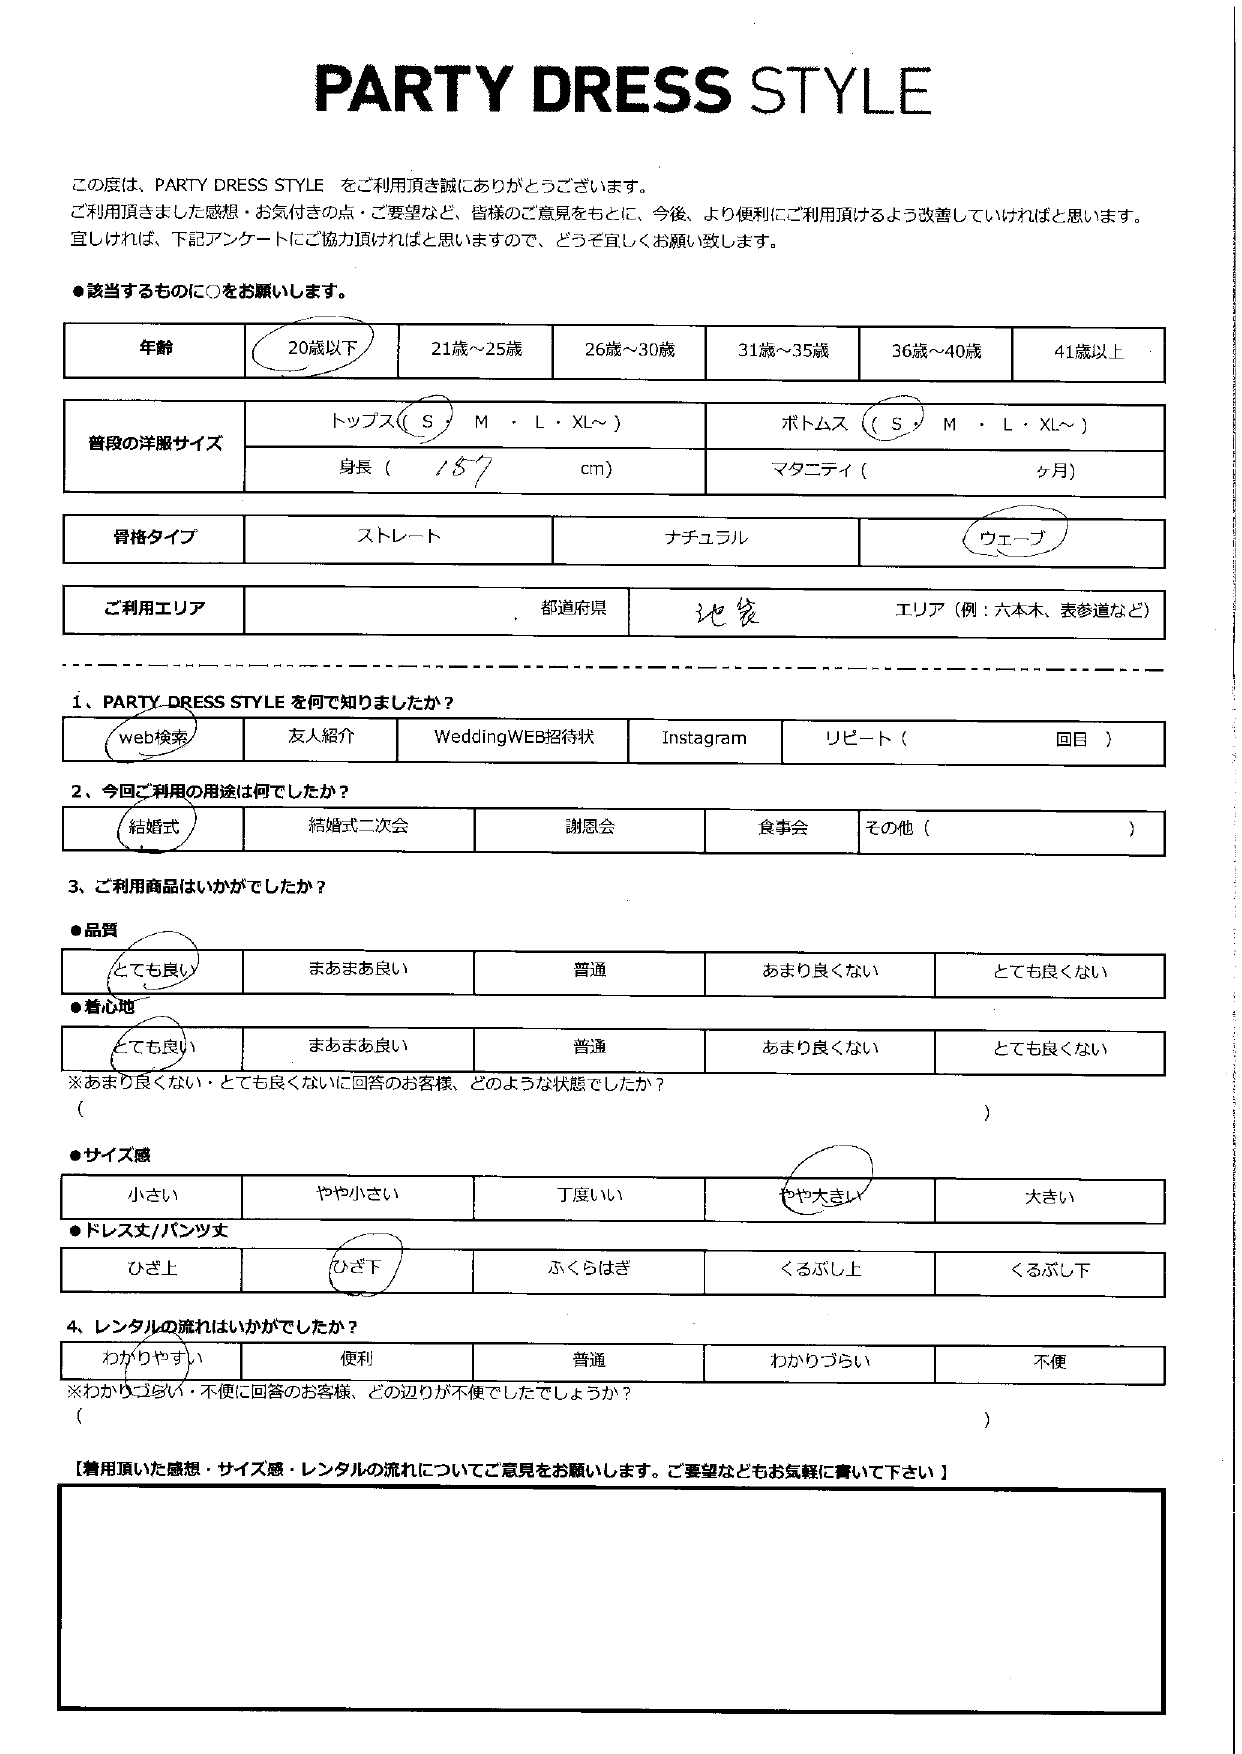 PARTY DRESS STYLE
この度は、PARTY DRESS STYLE をご利用頂き誠にありがとうございます。
ご利用頂きました感想・お気付きの点・ご要望など、皆様のご意見をもとに、今後、より便利にご利用頂けるよう改善していければと思います。
宜しければ、下記アンケートにご協力頂ければと思いますので、どうぞ宜しくお願い致します。
●該当するものに○をお願いします。
年齢 20歳以下 21歳～25歳 26歳～30歳 31歳～35歳 36歳～40歳 41歳以上
普段の洋服サイズ トップス( S ・ M ・ L ・ XL～ ) ボトムス ( S ・ M ・ L ・ XL～ )
身長 ( 157 cm) マタニティ ( ヶ月)
骨格タイプ ストレート ナチュラル ウェーブ
ご利用エリア 都道府県 池袋 エリア（例：六本木、表参道など）
1、PARTY DRESS STYLE を何で知りましたか？
web検索 友人紹介 WeddingWEB招待状 Instagram リピート ( 回目 )
2、今回ご利用の用途は何でしたか？
結婚式 結婚式二次会 謝恩会 食事会 その他 ( )
3、ご利用商品はいかがでしたか？
●品質
とても良い まあまあ良い 普通 あまり良くない とても良くない
●着心地
とても良い まあまあ良い 普通 あまり良くない とても良くない
※あまり良くない・とても良くないに回答のお客様、どのような状態でしたか？
( )
●サイズ感
小さい やや小さい 丁度いい やや大きい 大きい
●ドレス丈/パンツ丈
ひざ上 ひざ下 ふくらはぎ くるぶし上 くるぶし下
4、レンタルの流れはいかがでしたか？
わかりやすい 便利 普通 わかりづらい 不便
※わかりづらい・不便に回答のお客様、どの辺りが不便でしたでしょうか？
( )
【着用頂いた感想・サイズ感・レンタルの流れについてご意見をお願いします。ご要望などもお気軽に書いて下さい 】